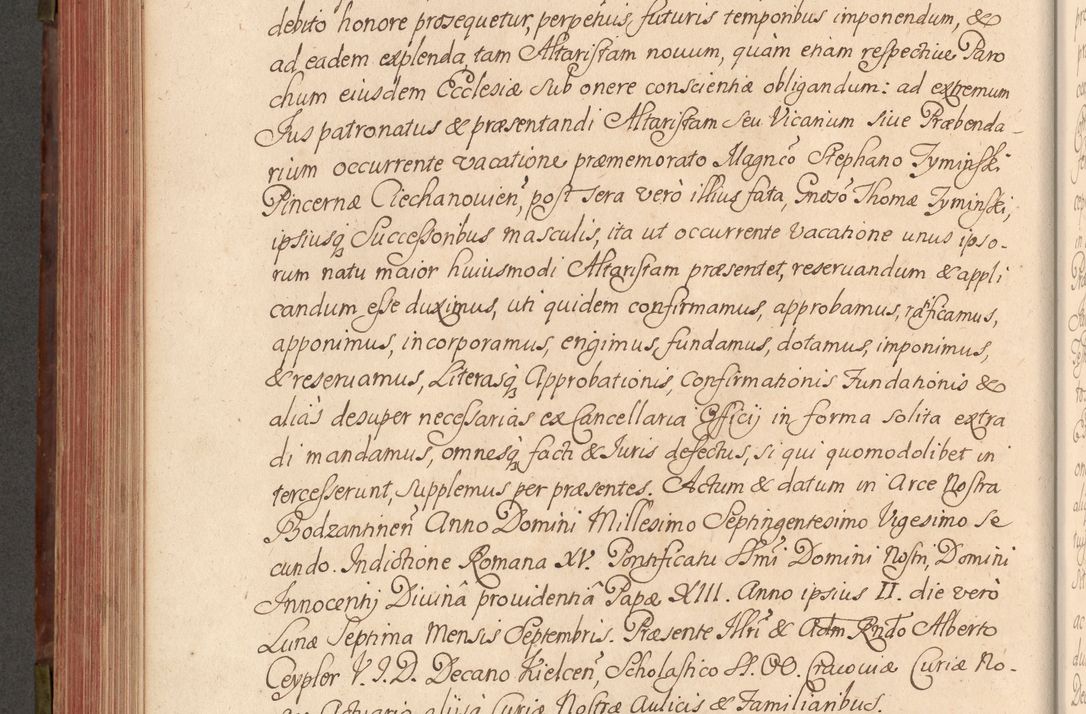 debito honore prosequetur, perpetuis, futuris temporibus imponendum, &
ad eadem explenda, tam Altaristam novum, quàm etiam respective Paro
chum eiusdem Ecclesiæ sub onere conscientiæ obligandum: ad extremum
Jus patronatus & præsentandi Altaristam seu Vicarium sive Præbenda-
rium occurrente vacatione præmemorato Magnco Stephano Tyminski
Pincernæ Ciechanovien, post sera verò illius fata, Gnoso Thomæ Tyminski,
ipsiusq Successoribus masculis, ita ut occurrente vacatione unus ipso-
rum natu maior huiusmodi Altaristam præsentet, reservandum & appli
candum esse duximus, uti quidem confirmamus, approbamus, ratificamus,
apponimus, incorporamus, erigimus, fundamus, dotamus, imponimus,
& reservamus, Literasq Approbationis, Confirmationis Fundationis &
aliàs desuper necessarias ex Cancellaria Officij in forma solita extra
di mandamus, omnesq facti & Juris defectus, si qui quomodolibet in
tercesserunt, supplemus per præsentes. Actum & datum in Arce Nostra
Bodzantinen Anno Domini Millesimo Septingentesimo Vigesimo Se
cundo. Indictione Romana XV. Pontificatu SSmi Domini Nostri, Domini
Innocentij Divinâ providentiâ Papæ XIII. Anno ipsius II. die verò
Lunæ Septima Mensis Septembris. Præsente Illri & Adm Rndo Alberto
Ceypler V.J.D. Decano Kielcen, Scholastico SS. OO. Cracoviæ Curiæ No-
Actuario alijsq Curiæ Nostræ Aulicis & Familiaribus.